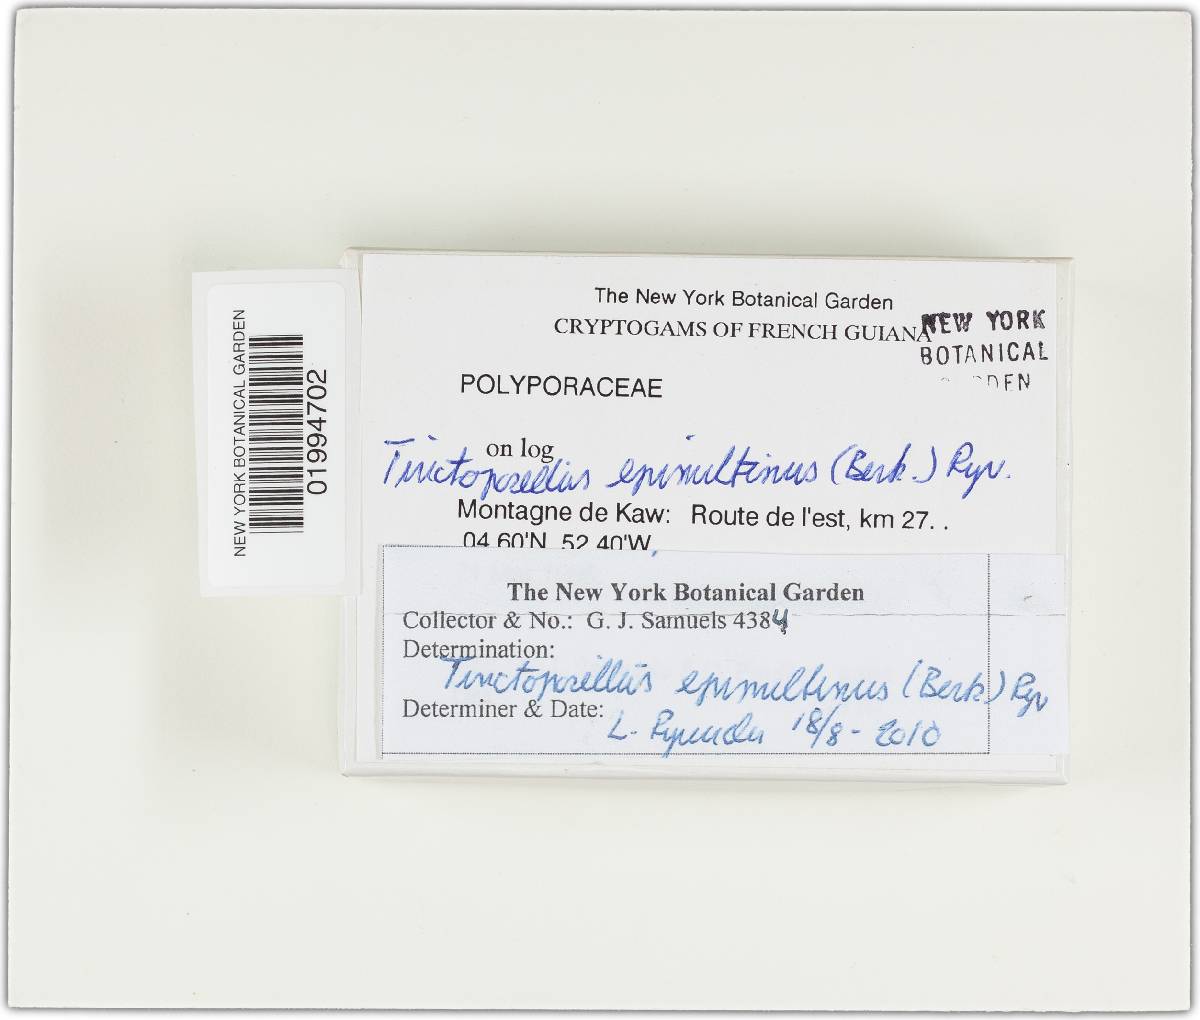 NEW YORK BOTANICAL GARDEN
01994702
The New York Botanical Garden
CRYPTOGAMS OF FRENCH GUIANA
NEW YORK
BOTANICAL
DEN
POLYPORACEAE
on log
Tinctoporellus epimiltinus (Berk.) Ryv.
Montagne de Kaw: Route de l'est, km 27. .
04 60'N, 52 40'W,
The New York Botanical Garden
Collector & No.: G. J. Samuels 4384
Determination:
Tinctoporellus epimiltinus (Berk.) Ryv
Determiner & Date:
L. Ryvarden 18/8 - 2010